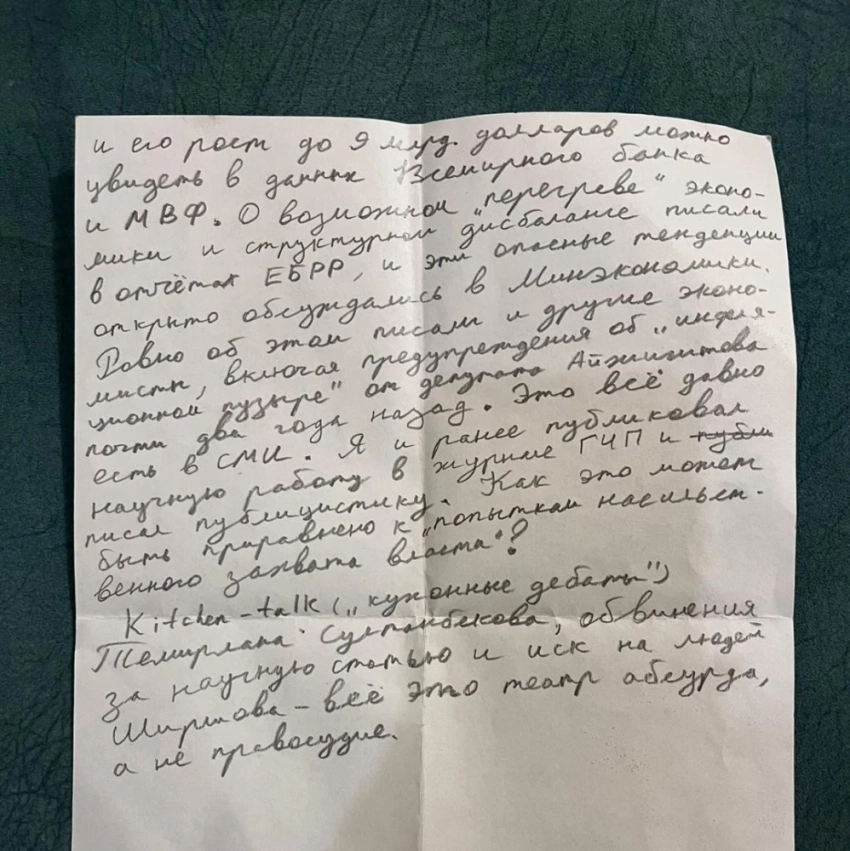 и его рост до 9 млрд. долларов можно
увидеть в данных Всемирного банка
и МВФ. О возможном „перегреве“ эконо-
мики и структурном дисбалансе писали
в отчётах ЕБРР, и эти опасные тенденции
открыто обсуждались в Минэкономики.
Ровно об этом писали и другие эконо-
мисты, включая предупреждения об „инфля-
ционном пузыре“ от депутата Айжигитова
почти два года назад. Это всё давно
есть в СМИ. Я и ранее публиковал
научную работу в журнале ГЧП и публи
писал публицистику. Как это может
быть приравнено к „попыткам насильст-
венного захвата власти“?
Kitchen-talk („кухонные дебаты“)
Темирлана Султанбекова, обвинения
за научную статью и иск на людей
– всё это театр абсурда,
а не правосудие.